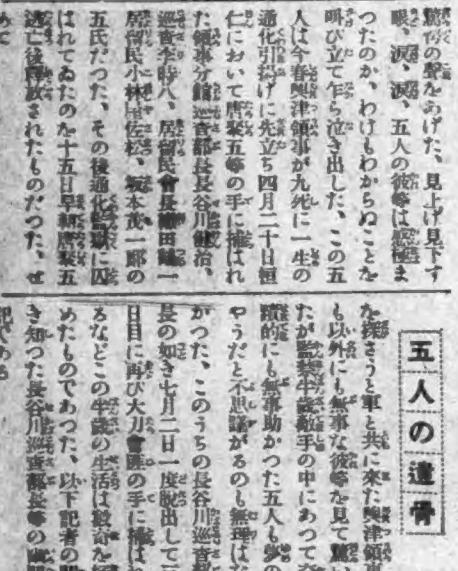 驚愕の聲をあげた、見上げ見下す
眼、涙、涙、五人の彼等は感極ま
つたのか、わけもわからぬことを
叫び立て乍ら泣き出した、この五
人は今春興津領事が九死に一生の
通化引揚げに先立ち四月二十日恒
仁において唐聚五等の手に捕はれ
た領事分館巡査部長長谷川
巡査李時八、居留民會長
居留民小林 佐松、坂本茂一郎の
五氏だつた、その後通化監獄に囚
はれてゐたのを十五日早朝唐聚五
逃亡後釋放されたものだつた、せ
めて
五人の遺骨
を探さうと軍と共に來た興津領事
も以外にも無事な彼等を見て驚い
たが監禁半歳敵手の中にあつて奇
蹟的にも無事助かつた五人も夢の
やうだと不思議がるのも無理はな
かつた、このうちの長谷川巡査部
長の如き七月二日一度脱出して三
日目に再び大刀會匪の手に捕はれ
るなどこの半歳の生活は數奇を極
めたものであつた、以下記者の聞
き知つた長谷川巡査部長等の幽閉
記である